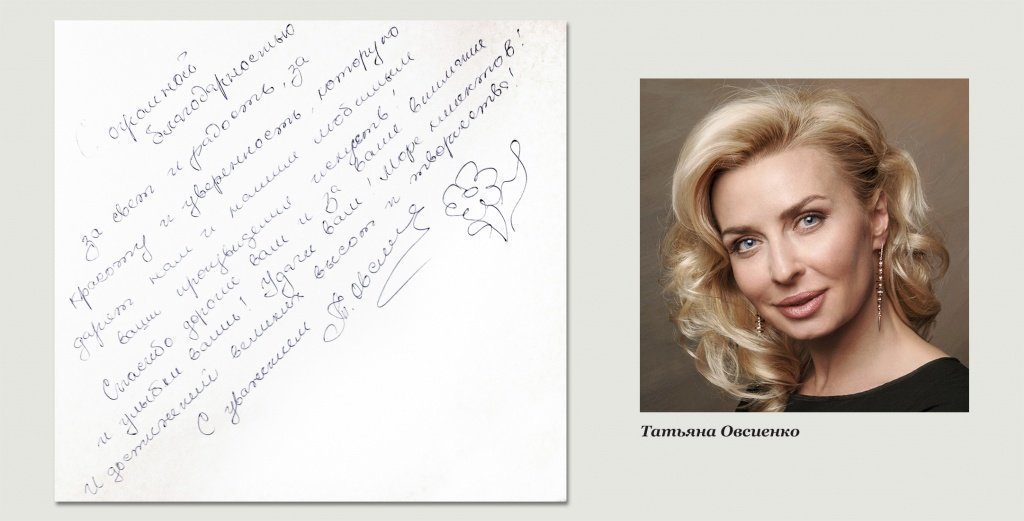 С огромной
благодарностью
за свет и радость, за
красоту и уверенность, которую
дарят нам и нашим любимым
ваши произведения искусств!
Спасибо дорогие вам и за ваше внимание
и улыбки ваши! Удачи вам! Море клиентов!
И достижений великих высот и творчества!
С уважением Т. Овсиенко
Татьяна Овсиенко